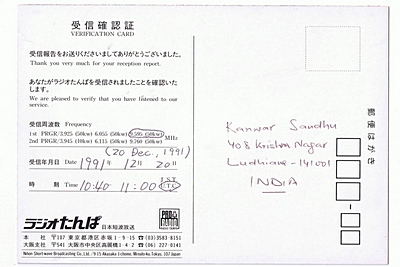 受信確認証
VERIFICATION CARD
受信報告をお送りくださいましてありがとうございました。
Thank you very much for your reception report.
あなたがラジオたんぱを受信されましたことを確認いた
します。
We are pleased to verify that you have listened to our
service.
受信周波数 Frequency
1st PRGR/3.925 (50kw) 6.055 (50kw) 9.595 (50kw)
2nd PRGR/3.945 (10kw) 6.115 (50kw) 9.760 (50kw) MHz
(20 Dec., 1991)
受信年月日 Date 1991年 12月 20日
時 刻 Time 10:40 11:00 JST
UTC
ラジオたんぱ 日本短波放送
本社 〒107 東京都港区赤坂1-9-15 ☎(03)3583-8151
大阪支社 〒541 大阪市中央区高麗橋1-4-2 ☎(06) 227-0141
Nihon Shortwave Broadcasting Co., Ltd./9-15 Akasaka 1-chome, Minato-ku, Tokyo, 107 Japan
郵便はがき
Kanwar Sandhu
408 Krishna Nagar
Ludhiana-141001
INDIA